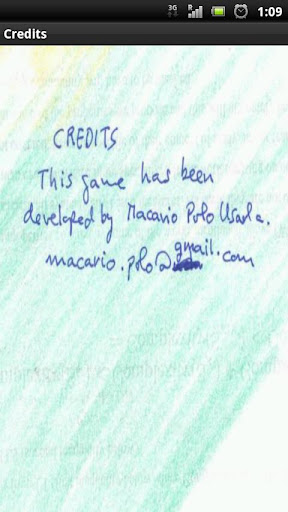 3G R 1:09
Credits
CREDITS
This game has been
developed by Macario Polo Usaola.
macario.polo@gmail.com